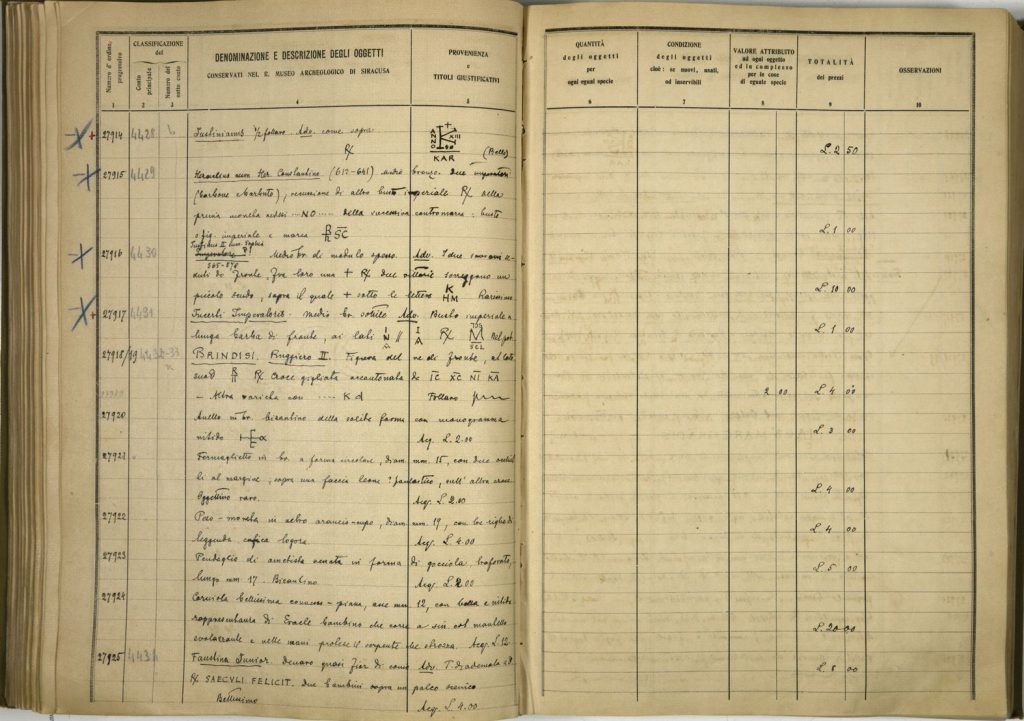 Numero d'ordine progressivo
CLASSIFICAZIONE del
Costo principale
Numero del sotto conto
DENOMINAZIONE E DESCRIZIONE DEGLI OGGETTI
CONSERVATI NEL R. MUSEO ARCHEOLOGICO DI SIRACUSA
PROVENIENZA
e
TITOLI GIUSTIFICATIVI
QUANTITÀ
degli oggetti
per
ogni egual specie
CONDIZIONE
degli oggetti
cioè: se nuovi, usati,
od inservibili
VALORE ATTRIBUITO
ad ogni oggetto
ed in complesso
per le cose
di eguale specie
TOTALITÀ
dei prezzi
OSSERVAZIONI
1 2 3 4 5 6 7 8 9 10
27914 4428 Justinianus ½ follaro. Adv. come sopra
R/ ANNO K XIII KAR (Bollo) L. 2 50
27915 4429 Heraclius cum Her. Constantino (612-641) medio bronzo. Due imperatori
(barbone barbuto), recussione di altro busto imperiale R/ della
prima moneta vedesi ...NO... della successiva contromarca: busto
o fig. imperiale e marca SC L. 1 00
27916 4430 Justinus II cum Sophia
565-578
Medio br. di modulo spesso. Adv. I due sovrani se-
duti di fronte, fra loro una + R/ due vittorie sorreggono un
piccolo scudo, sopra il quale + sotto le lettere K HM Rarissimo L. 10 00
27917 4431 Incerti Imperatoris. Medio br. sottile Adv. Busto imperiale a
lunga barba di fronte, ai lati R/ M SCL L. 1 00
27918/19 4432-33 BRINDISI. Ruggiero II. Figura del re di fronte, ai lati
R/ Croce gigliata accantonata da IC XC NI KA
- Altra varietà con ..... K d Follaro 2 00 L. 4 00
27920 Anello in br. bizantino della solita forma con monogramma
nitido Acq. L. 2.00 L. 3 00
27921 Fermaglietto in br. a forma circolare, diam. mm. 15, con due occhiel-
li al margine, sopra una faccia leone? fantastico, sull'altra croce
Oggettino raro. Acq. L. 2.00 L. 4 00
27922 Peso-moneta in vetro arancio-cupo, diam. mm 19, con tre righe di
leggenda cufica logora. Acq. L. 4.00 L. 4 00
27923 Pendaglio di ametista venata in forma di gocciola, traforato,
lungo mm 17. Bizantino. Acq. L. 2.00 L. 5 00
27924 Corniola bellissima convesso-piana, asse mm. 12, con bella e nitida
rappresentanza di Eracle bambino che corre a sin. col mantello
svolazzante e nelle mani protese il serpente che strozza. Acq. L. 12 L. 20 00
27925 4434 Faustina Junior. Denaro quasi fior di conio Adv. T. diademata a D.
R/ SAECULI FELICIT. Due bambini sopra un palco scenico
Bellissimo Acq. L. 4.00 L. 8 00